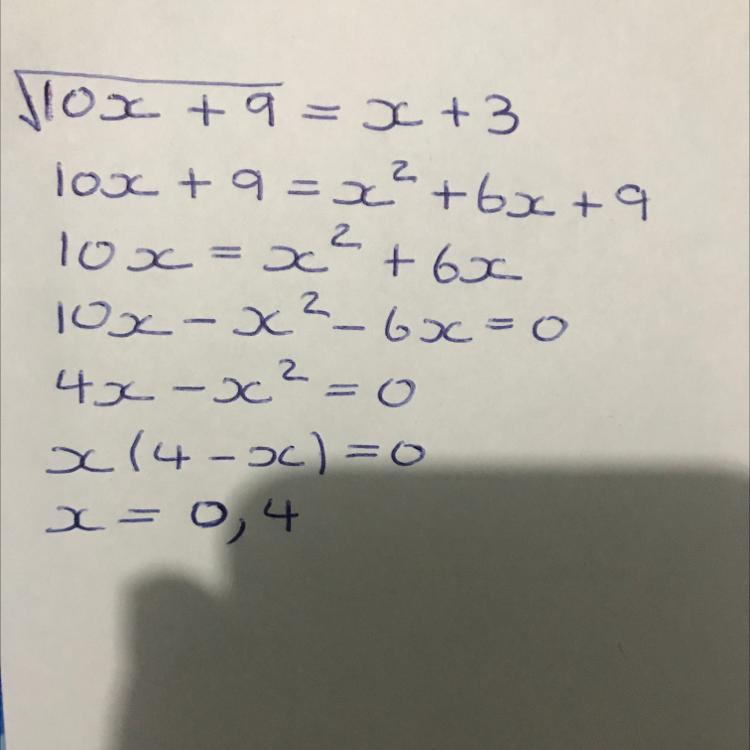 √10x + 9 = x + 3
10x + 9 = x² + 6x + 9
10x = x² + 6x
10x - x² - 6x = 0
4x - x² = 0
x(4 - x) = 0
x = 0, 4